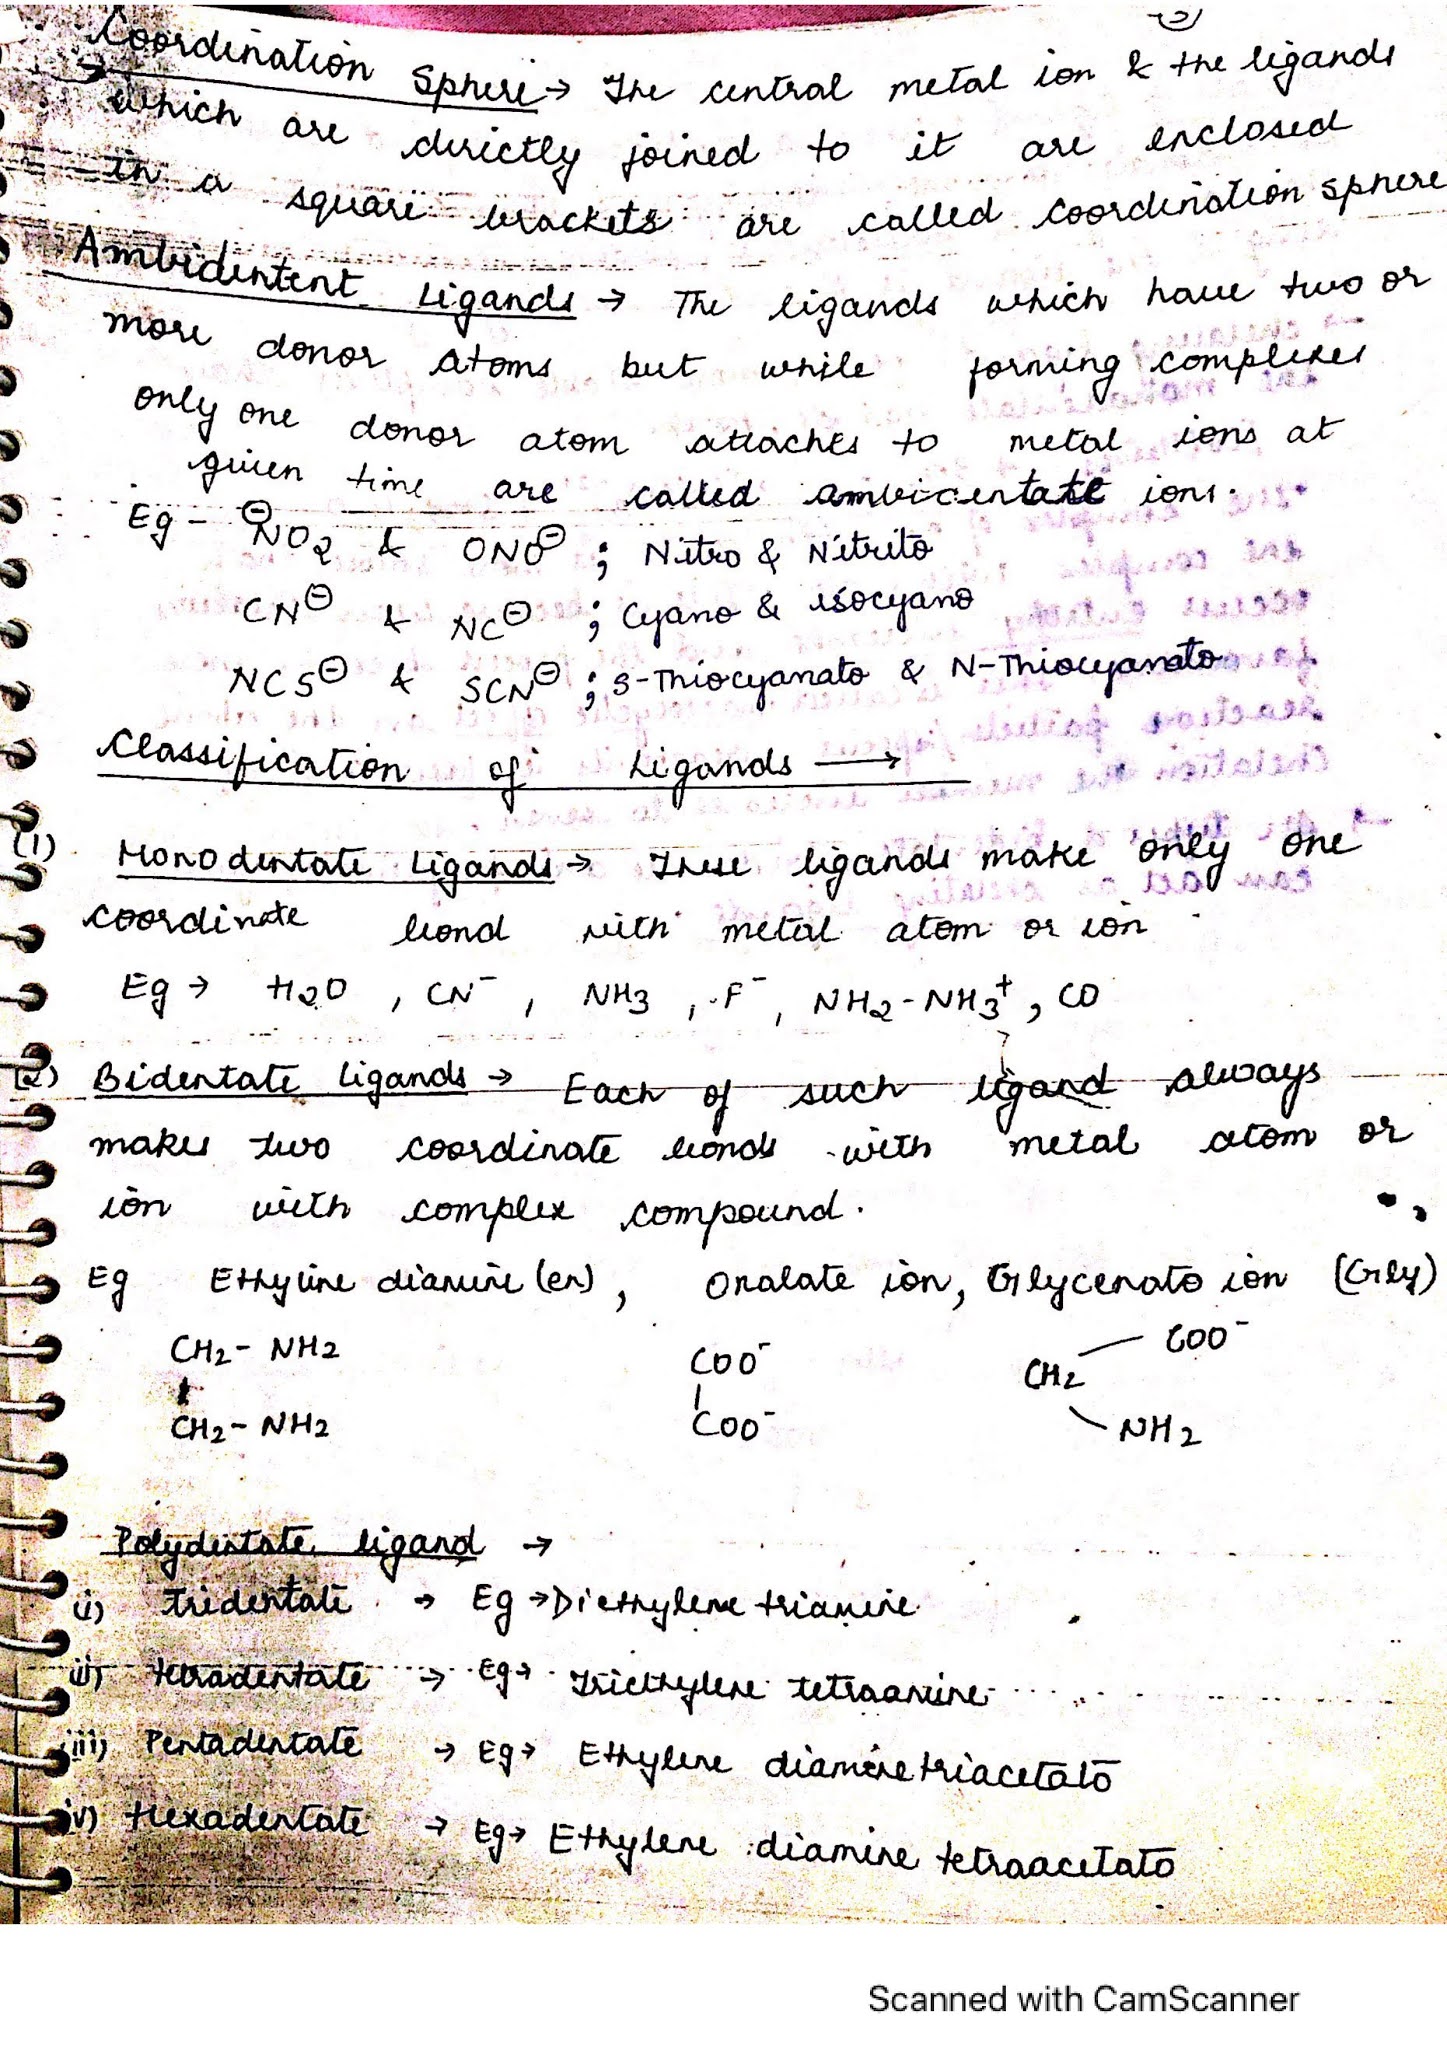 Coordination Sphere → The central metal ion & the ligands
which are directly joined to it are enclosed
in a square brackets are called coordination sphere
Ambidentent Ligands → The ligands which have two or
more donor atoms but while forming complexes
only one donor atom attaches to metal ions at
given time are called ambidentate ions.
Eg - ⊖NO2 & ONO⊖ ; Nitro & Nitrito
CN⊖ & NC⊖ ; Cyano & isocyano
NCS⊖ & SCN⊖ ; S-Thiocyanato & N-Thiocyanato
Classification of Ligands →
(1) Monodentate Ligands → These ligands make only one
coordinate bond with metal atom or ion
Eg → H2O , CN⁻ , NH3 , F⁻ , NH2-NH3⁺ , CO
(2) Bidentate Ligands → Each of such ligand always
makes two coordinate bonds with metal atom or
ion with complex compound.
Eg Ethyline diamine (en), Oxalate ion, Glycenato ion (Gly)
CH2- NH2 COO⁻ CH2 — COO⁻
| |
CH2- NH2 COO⁻ \ NH2
Polydentate ligand →
(i) tridentate → Eg → Diethylene triamine
ii) tetradentate → Eg → Triethylene tetraamine
iii) Pentadentate → Eg → Ethylene diamine triacetato
iv) Hexadentate → Eg → Ethylene diamine tetraacetato
Scanned with CamScanner